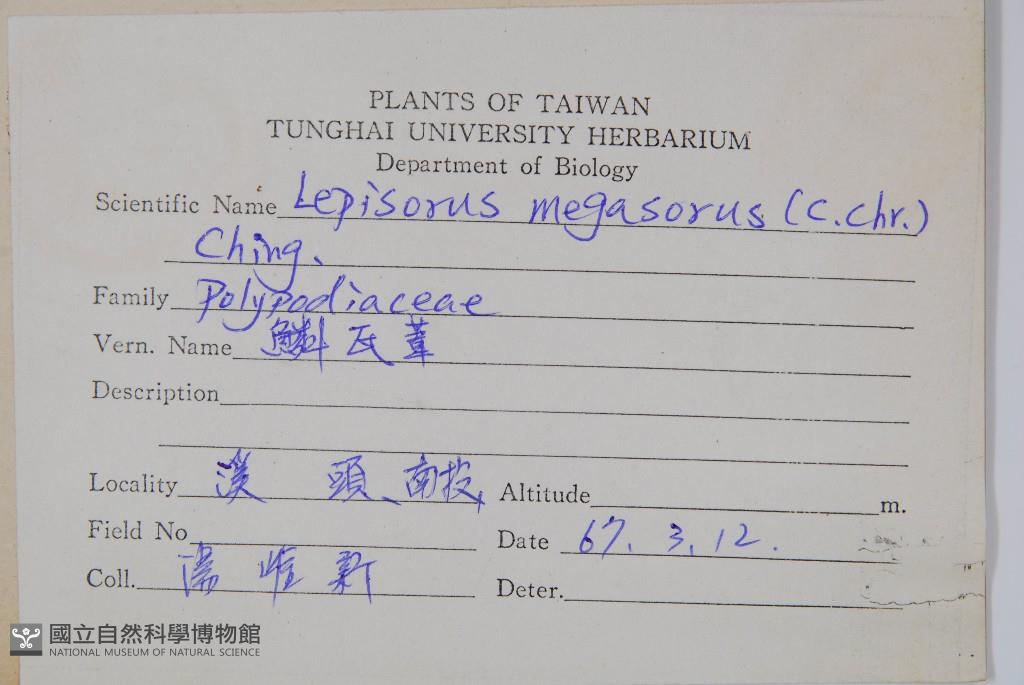 PLANTS OF TAIWAN
TUNGHAI UNIVERSITY HERBARIUM
Department of Biology
Scientific Name Lepisorus megasorus (C.Chr.)
Ching.
Family Polypodiaceae
Vern. Name 鱗瓦葦
Description
Locality 溪 頭、南投 Altitude m.
Field No
Date 67. 3. 12.
Coll. 惟新
Deter.
國立自然科學博物館
NATIONAL MUSEUM OF NATURAL SCIENCE